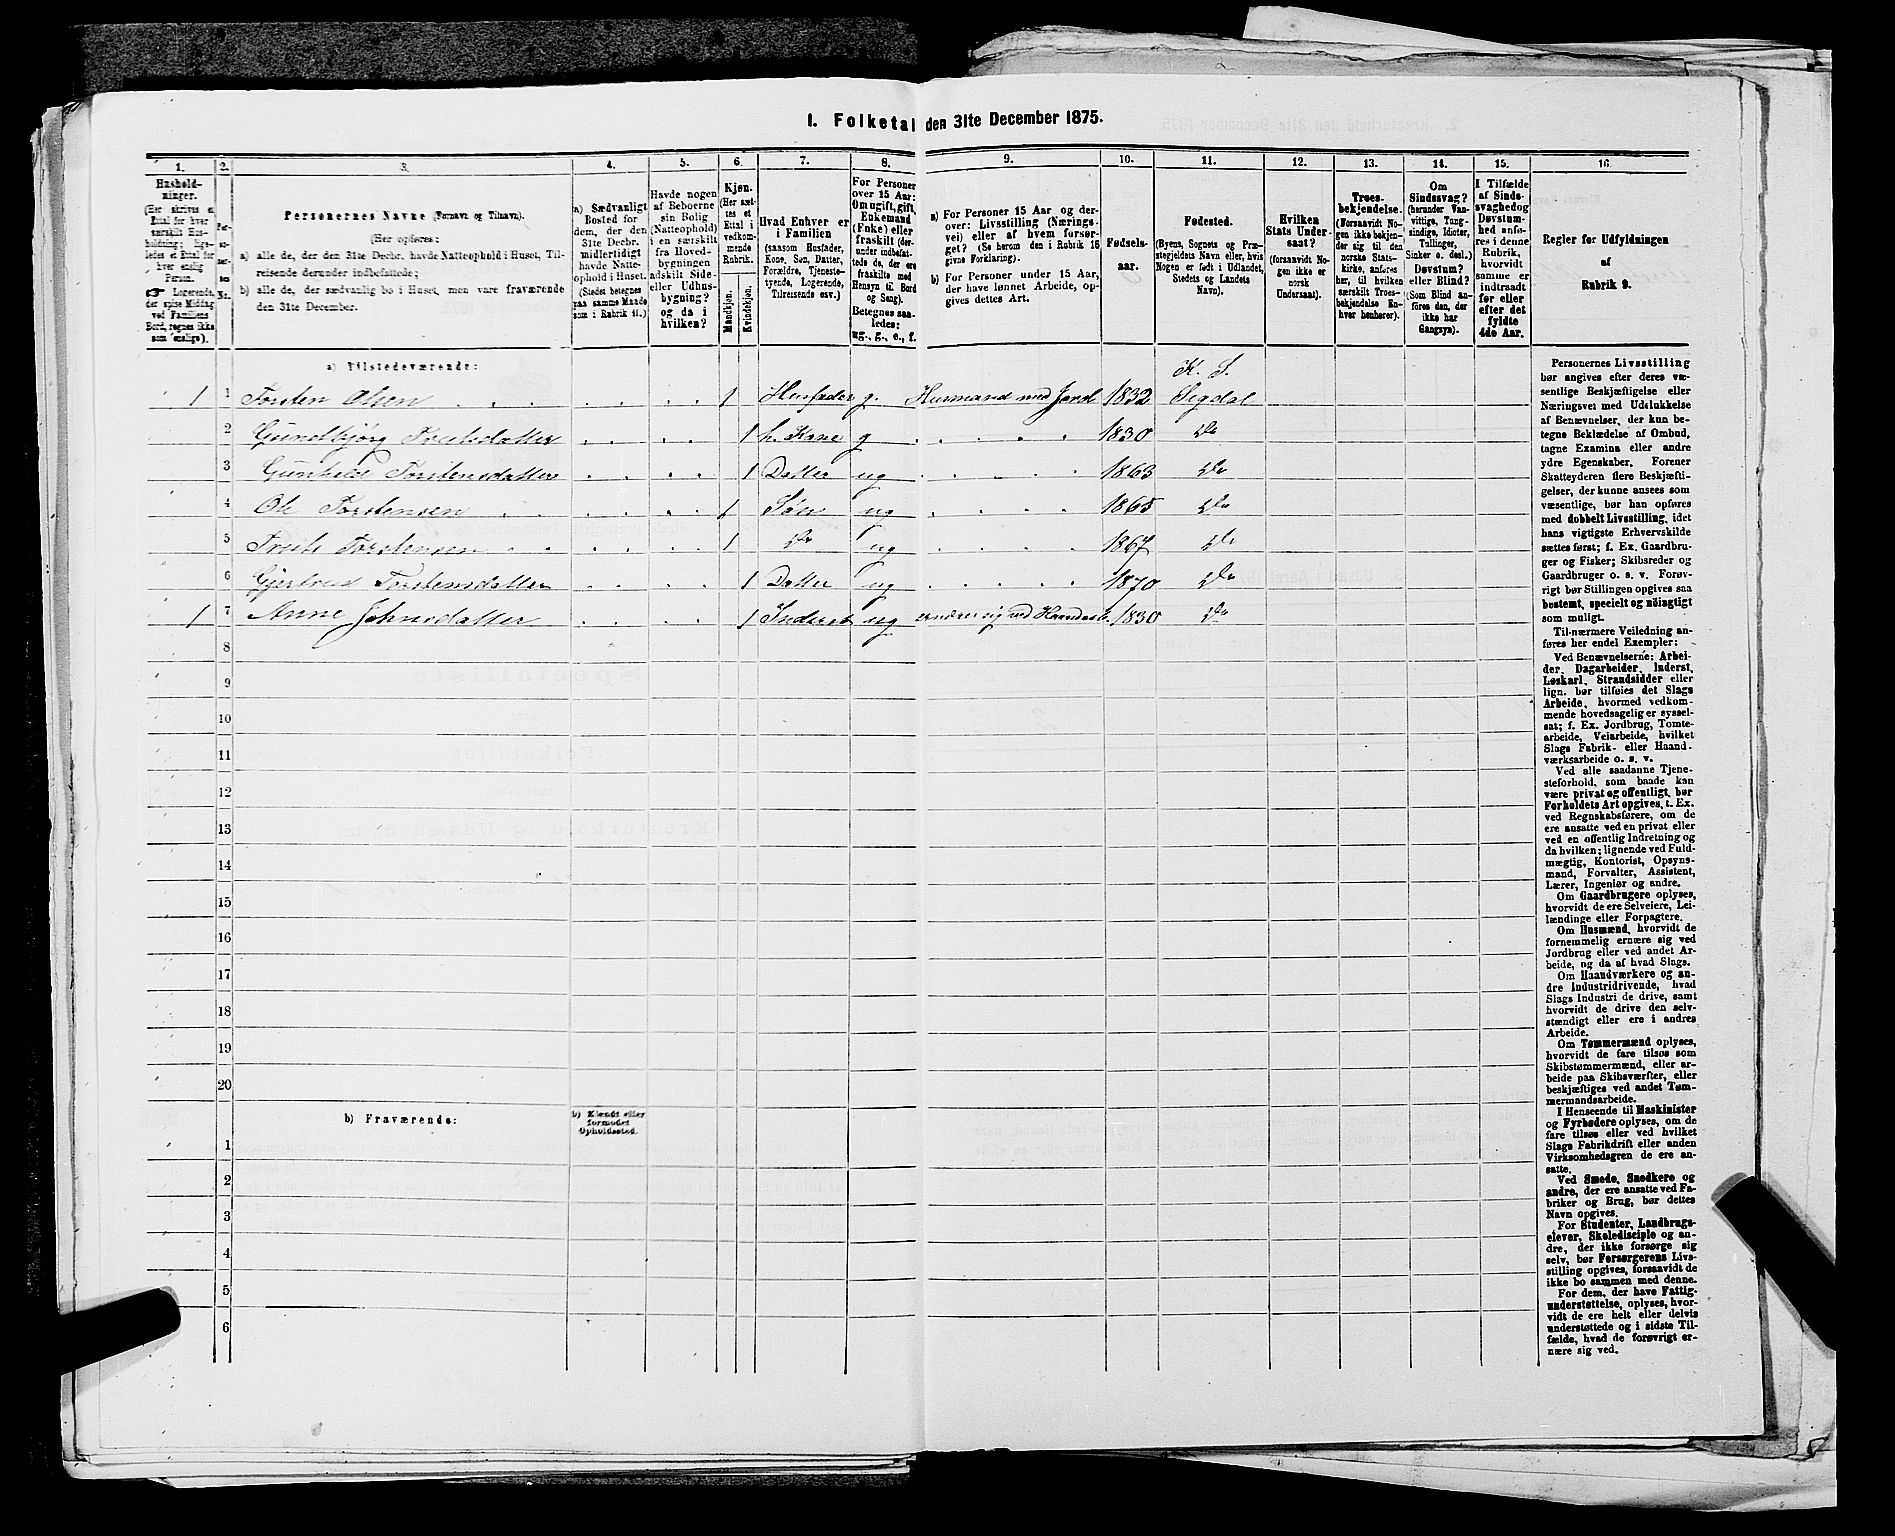 1. Folketal den 31te December 1875.
1. 2. 3. 4. 5. 6. 7. 8. 9. 10. 11. 12. 13. 14. 15. 16.
Hushold-
ninger.
(Her skrives et
Ettal for hver
særskilt Hus-
holdning; lige-
ledes et Ettal for
hver enslig
Person.
Logerende,
der spise Middag
ved Familiens
Bord, regnes ikke
som enslige).
Personernes Navne (Fornavn og Tilnavn).
(Her opføres:
a) alle de, der den 31te Decbr. havde Natteophold i Huset, Til-
reisende derunder indbefattede;
b) alle de, der sædvanlig bo i Huset, men vare fraværende
den 31te December.
a) Sædvanligt
Bosted for
dem, der den
31te Decbr.
midlertidigt
havde Natte-
ophold i Huset.
(Stedet betegnes
paa samme Maade
som i Rubrik 11.)
Havde nogen
af Beboerne
sin Bolig
(Natteophold)
i en særskilt
fra Hoved-
bygningen
adskilt Side-
eller Udhus-
bygning?
og da i
hvilken?
Kjøn.
(Her sæt-
tes et
Ettal i
vedkom-
mende
Rubrik.
Mandkjøn.
Kvindekjøn.
Hvad Enhver er
i Familien
(saasom Husfader,
Kone, Søn, Datter,
Forældre, Tjeneste-
tyende, Logerende,
Tilreisende osv.)
For Personer
over 15 Aar:
Om ugift, gift,
Enkemand
(Enke) eller
fraskilt (der-
under indbefat-
tede de, der ere
fraskilte med
Hensyn til Bord
og Seng).
Betegnes saa-
ledes:
ug., g., e., f.
a) For Personer 15 Aar og der-
over: Livsstilling (Nærings-
vei) eller af hvem forsør-
get? (Se herom den i Rubrik 16
givne Forklaring).
b) For Personer under 15 Aar,
der have lønnet Arbeide, op-
gives dettes Art.
Fødsels-
aar.
Fødested.
(Byens, Sognets og Præ-
stegjeldets Navn eller, hvis
Nogen er født i Udlandet,
Stedets og Landets
Navn).
Hvilken
Stats Under-
saat?
(forsaavidt No-
gen ikke er
norsk
Undersaat).
Troes-
bekjendelse.
(Forsaavidt No-
gen ikke bekjen-
der sig til den
norske Stats-
kirke, anføres
her, til hvilken
særskilt Troes-
bekjendelse En-
hver henhører).
Om
Sindssvag?
(herunder Van-
vittige, Tung-
sindige, Idioter,
Tullinger,
Sinker o. desl.)
Døvstum?
eller Blind?
(Som Blind an-
føres den, der
ikke har
Gangsyn).
I Tilfælde
af Sinds-
svaghed og
Døvstum-
hed anfø-
res i denne
Rubrik,
hvorvidt
samme er
indtraadt
før eller
efter det
fyldte
4de Aar.
Regler for Udfyldningen
af
Rubrik 9.
a) Tilstedeværende:
K. S.
1 1 Torsten Olsen 1 Husfader g. Husmand med Jord 1832 Sigdal
2 Gundbjørg Truls​datter 1 h. Kone g 1830 Do
3 Gunhild Torstensdatter 1 Datter ug 1863 Do
4 Ole Torstensen 1 Søn ug 1865 Do
5 Truls Torstensen 1 Do ug 1867 Do
6 Gjertrud Torstensdatter 1 Datter ug 1870 Do
1 7 Anne Johnsdatter 1 Inderst ug ernærer sig ved 1830 Do
8
9
10
11
12
13
14
15
16
17
18
19
20
b) Fraværende:
b) Kjendt eller
formodet
Opholdssted.
1
2
3
4
5
6
Personernes Livsstilling
bør angives efter deres væ-
sentlige Beskjæftigelse eller
Næringsvei med Udelukkelse
af Benævnelser, der kun be-
tegne Beklædelse af Ombud,
tagne Examina eller andre
ydre Egenskaber. Forener
Skatteyderen flere Beskjæfti-
gelser, der kunne ansees som
væsentlige, bør han opføres
med dobbelt Livsstilling, idet
hans vigtigste Erhvervskilde
sættes først; f. Ex. Gaardbru-
ger og Fisker; Skibsreder og
Gaardbruger o. s. v. Forøv-
rigt bør Stillingen opgives saa
bestemt, specielt og nøiagtigt
som muligt.
Til nærmere Veiledning an-
føres her endel Exempler:
Ved Benævnelserne: Arbei-
der, Dagarbeider, Inderst,
Løskarl, Strandsidder eller
lign. bør tilføies det Slags
Arbeide, hvormed vedkom-
mende hovedsagelig er syssel-
sat; f. Ex. Jordbrug, Tomte-
arbeide, Veiarbeide, hvilket
Slags Fabrik- eller Haand-
værksarbeide o. s. v.
Ved alle saadanne Tjene-
steforhold, som baade kan
være privat og offentligt, bør
Forholdets Art opgives, t. Ex.
ved Regnskabsførere, om de
ere ansatte ved en privat eller
ved en offentlig Indretning og
da hvilken; lignende ved Fuld-
mægtig, Kontorist, Opsyns-
mand, Forvalter, Assistent,
Lærer, Ingeniør og andre.
Om Gaardbrugere oplyses,
hvorvidt de ere Selveiere, Lei-
lændinge eller Forpagtere.
Om Husmænd, hvorvidt de
fornemmelig ernære sig ved
Jordbrug eller ved andet Ar-
beide, og da af hvad Slags.
Om Haandværkere og an-
dre Industridrivende, hvad
Slags Industri de drive, samt
hvorvidt de drive den selv-
stændigt eller ere i andres
Arbeide.
Om Tømmermænd oplyses,
hvorvidt de fare tilsøs som
Skibstømmermænd, eller ar-
beide paa Skibsværfter, eller
beskjæftiges ved andet Tøm-
mermandsarbeide.
I Henseende til Maskinister
og Fyrbødere oplyses, om de
fare tilsøs eller ved hvilket
Slags Fabrikdrift eller anden
Virksomhedsgren de ere an-
satte.
Ved Smede, Snedkere og
andre, der ere ansatte ved Fa-
briker og Brug, bør dettes
Navn opgives.
For Studenter, Landbrugs-
elever, Skoledisciple og an-
dre, der ikke forsørge sig
selv, bør Forsørgerens Livs-
stilling opgives, forsaavidt de
ikke bo sammen med denne.
For dem, der have Fattig-
understøttelse, oplyses, hvor-
vidt de ere helt eller delvis
understøttede og i sidste Til-
fælde, hvad de forøvrigt er-
nære sig ved.